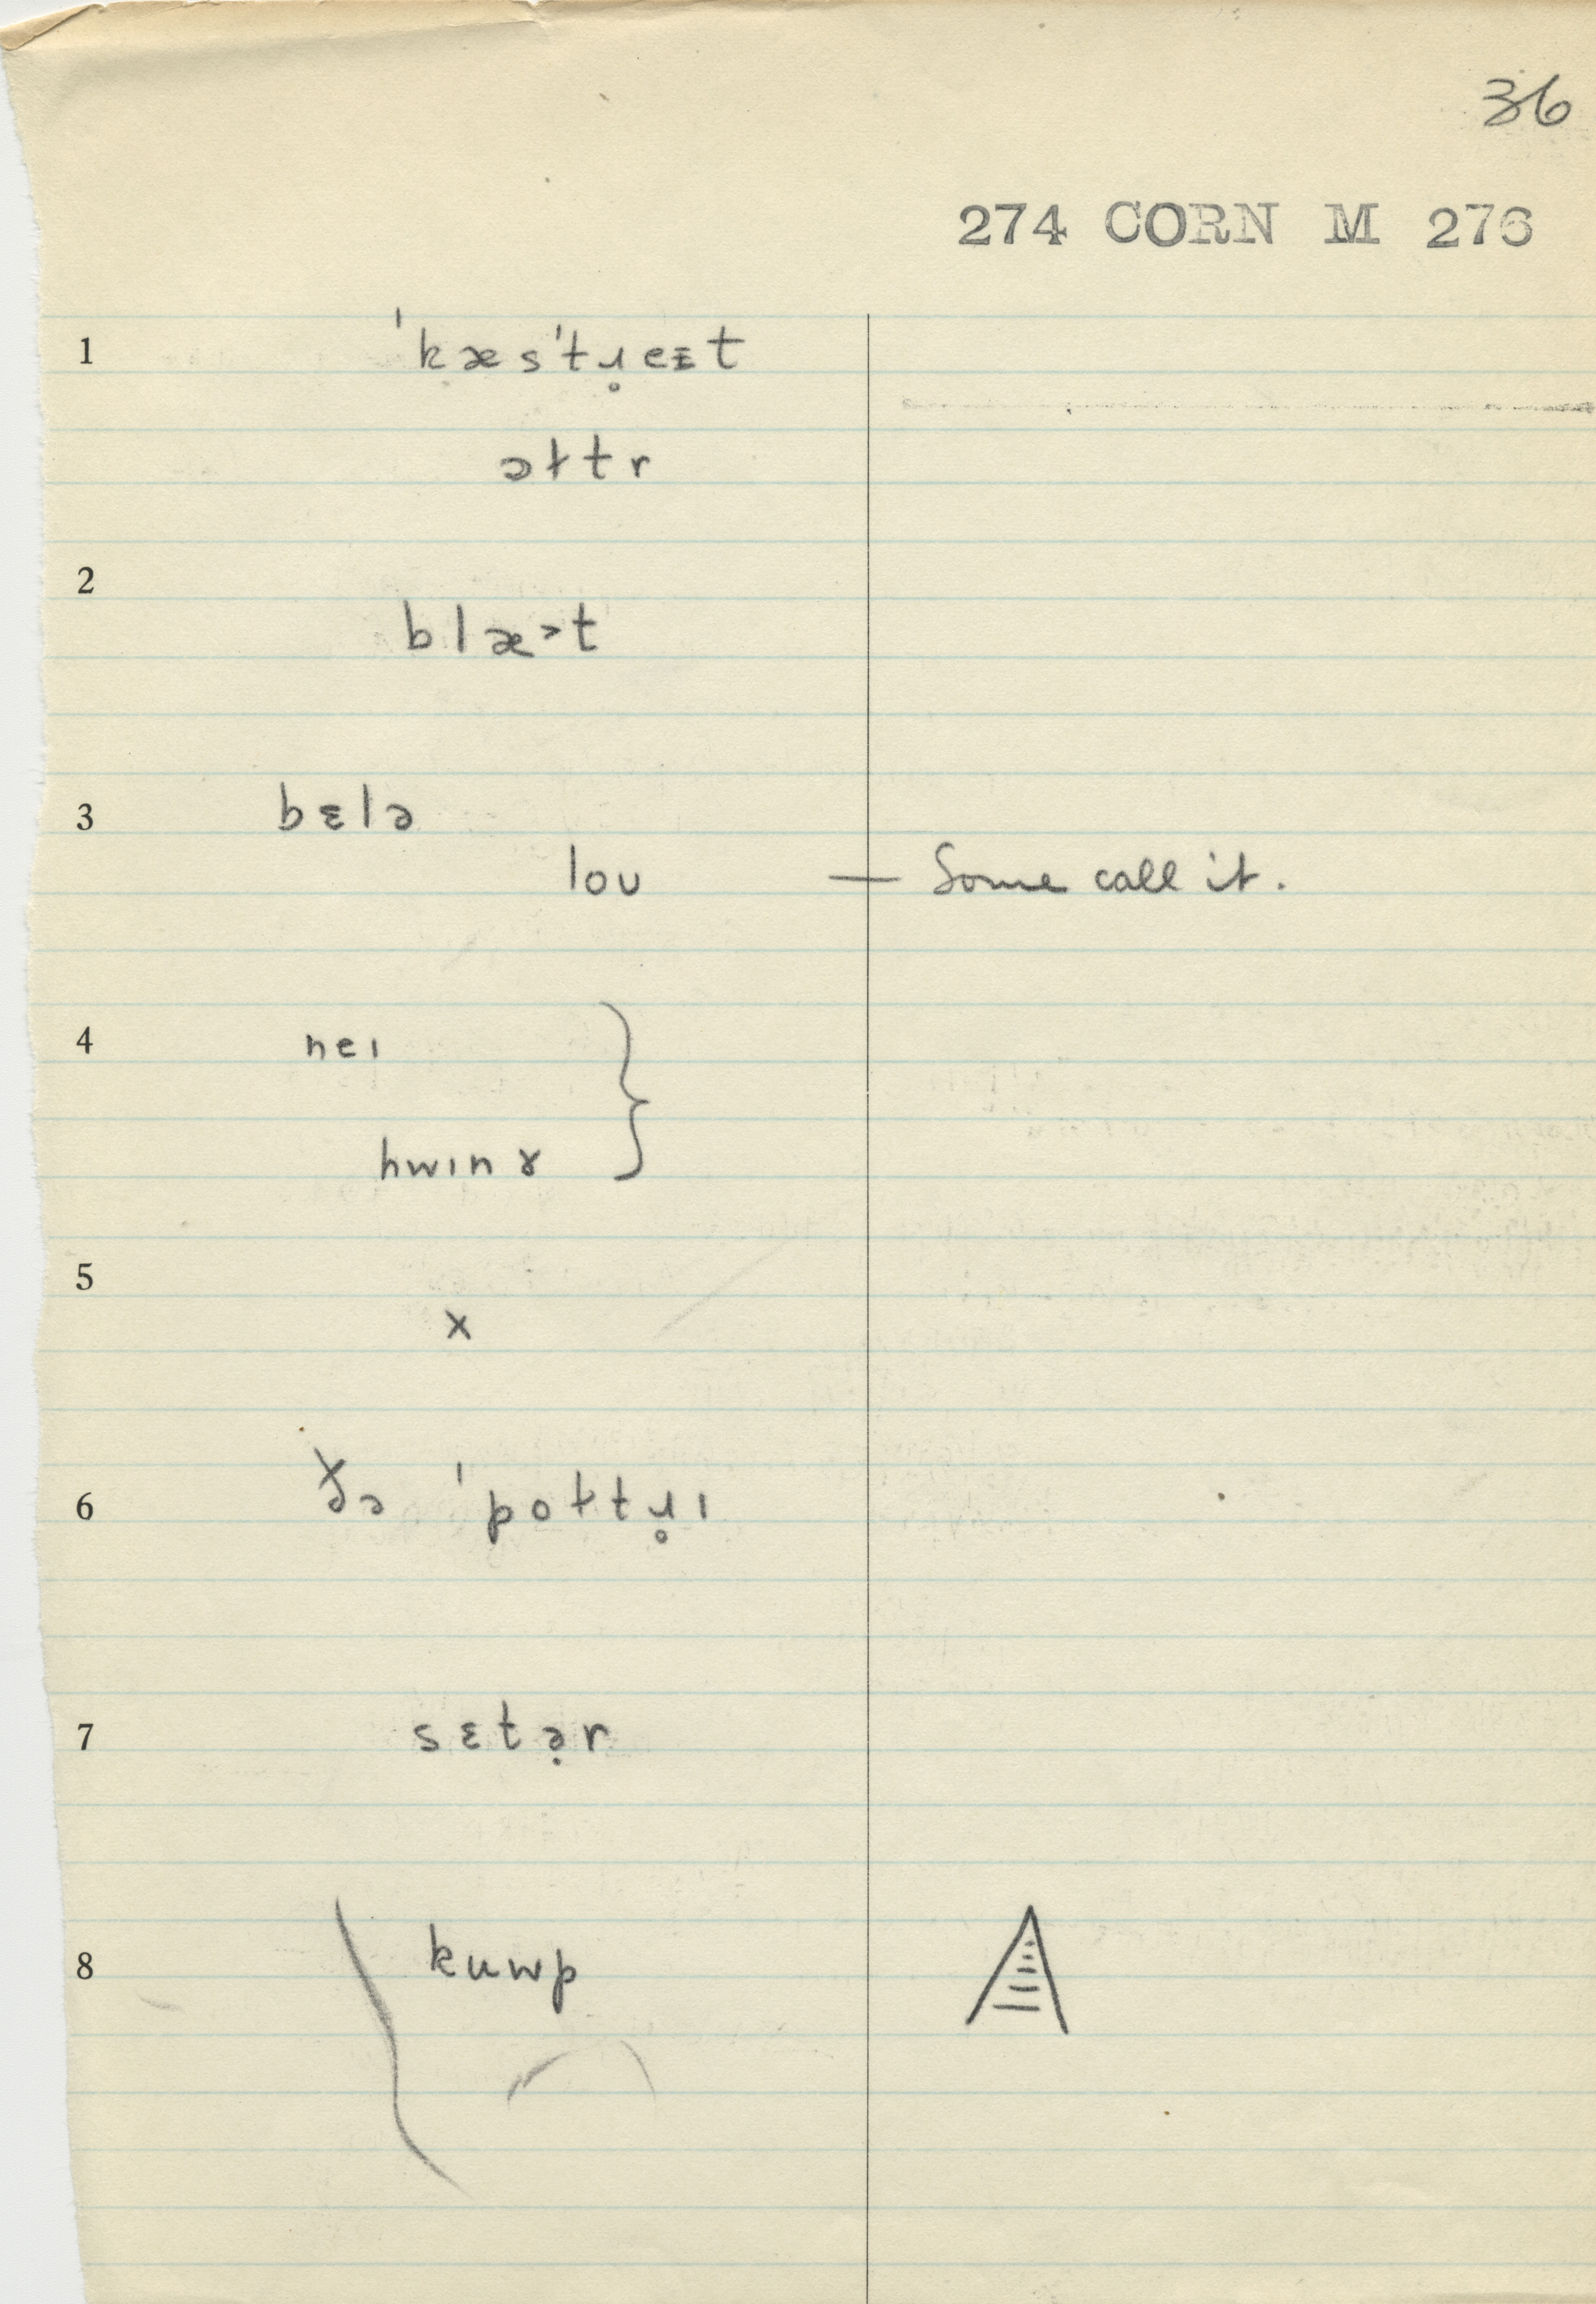 36
274 CORN M 276
1 ˈkæsˈtɹ̥eɪt
əɫtr
2
blæ˃t
3 bɛlə
lou — Some call it.
4 neɪ
hwɪnɤ
5
x
6 ðə ˈpoɫtɹ̥ɪ
7 sɛtə̣r
8 kuwp